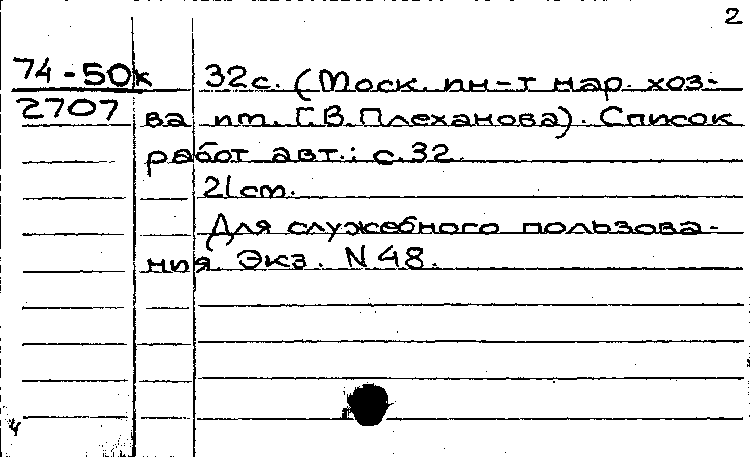 2
74-50к 32с. (Моск. ин-т нар. хоз-
2707 ва им. Г.В. Плеханова). Список
работ авт.: с. 32.
21 см.
Для служебного пользова-
ния. Экз. N 48.
4